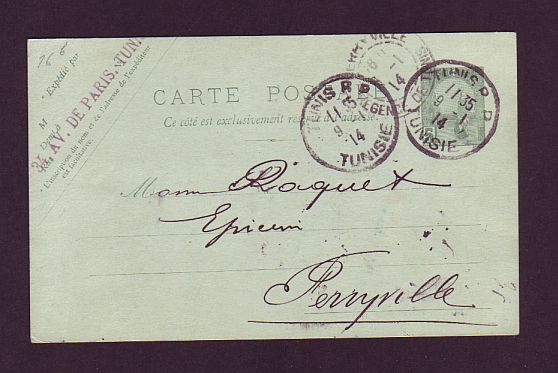 Expédié par
AV. DE PARIS. TUN
M
L'inscription du nom et de l'adresse de l'expéditeur
est facultative.
CARTE POS
Ce côté est exclusivement rés
FERRYVILLE
8 -1
14
TUNIS R.P.
11 35
9 -1
14
TUNISIE
TUNIS R.P.
11 35
9 -1
14
TUNISIE
Monsr Raquet
Epicier
Ferryville